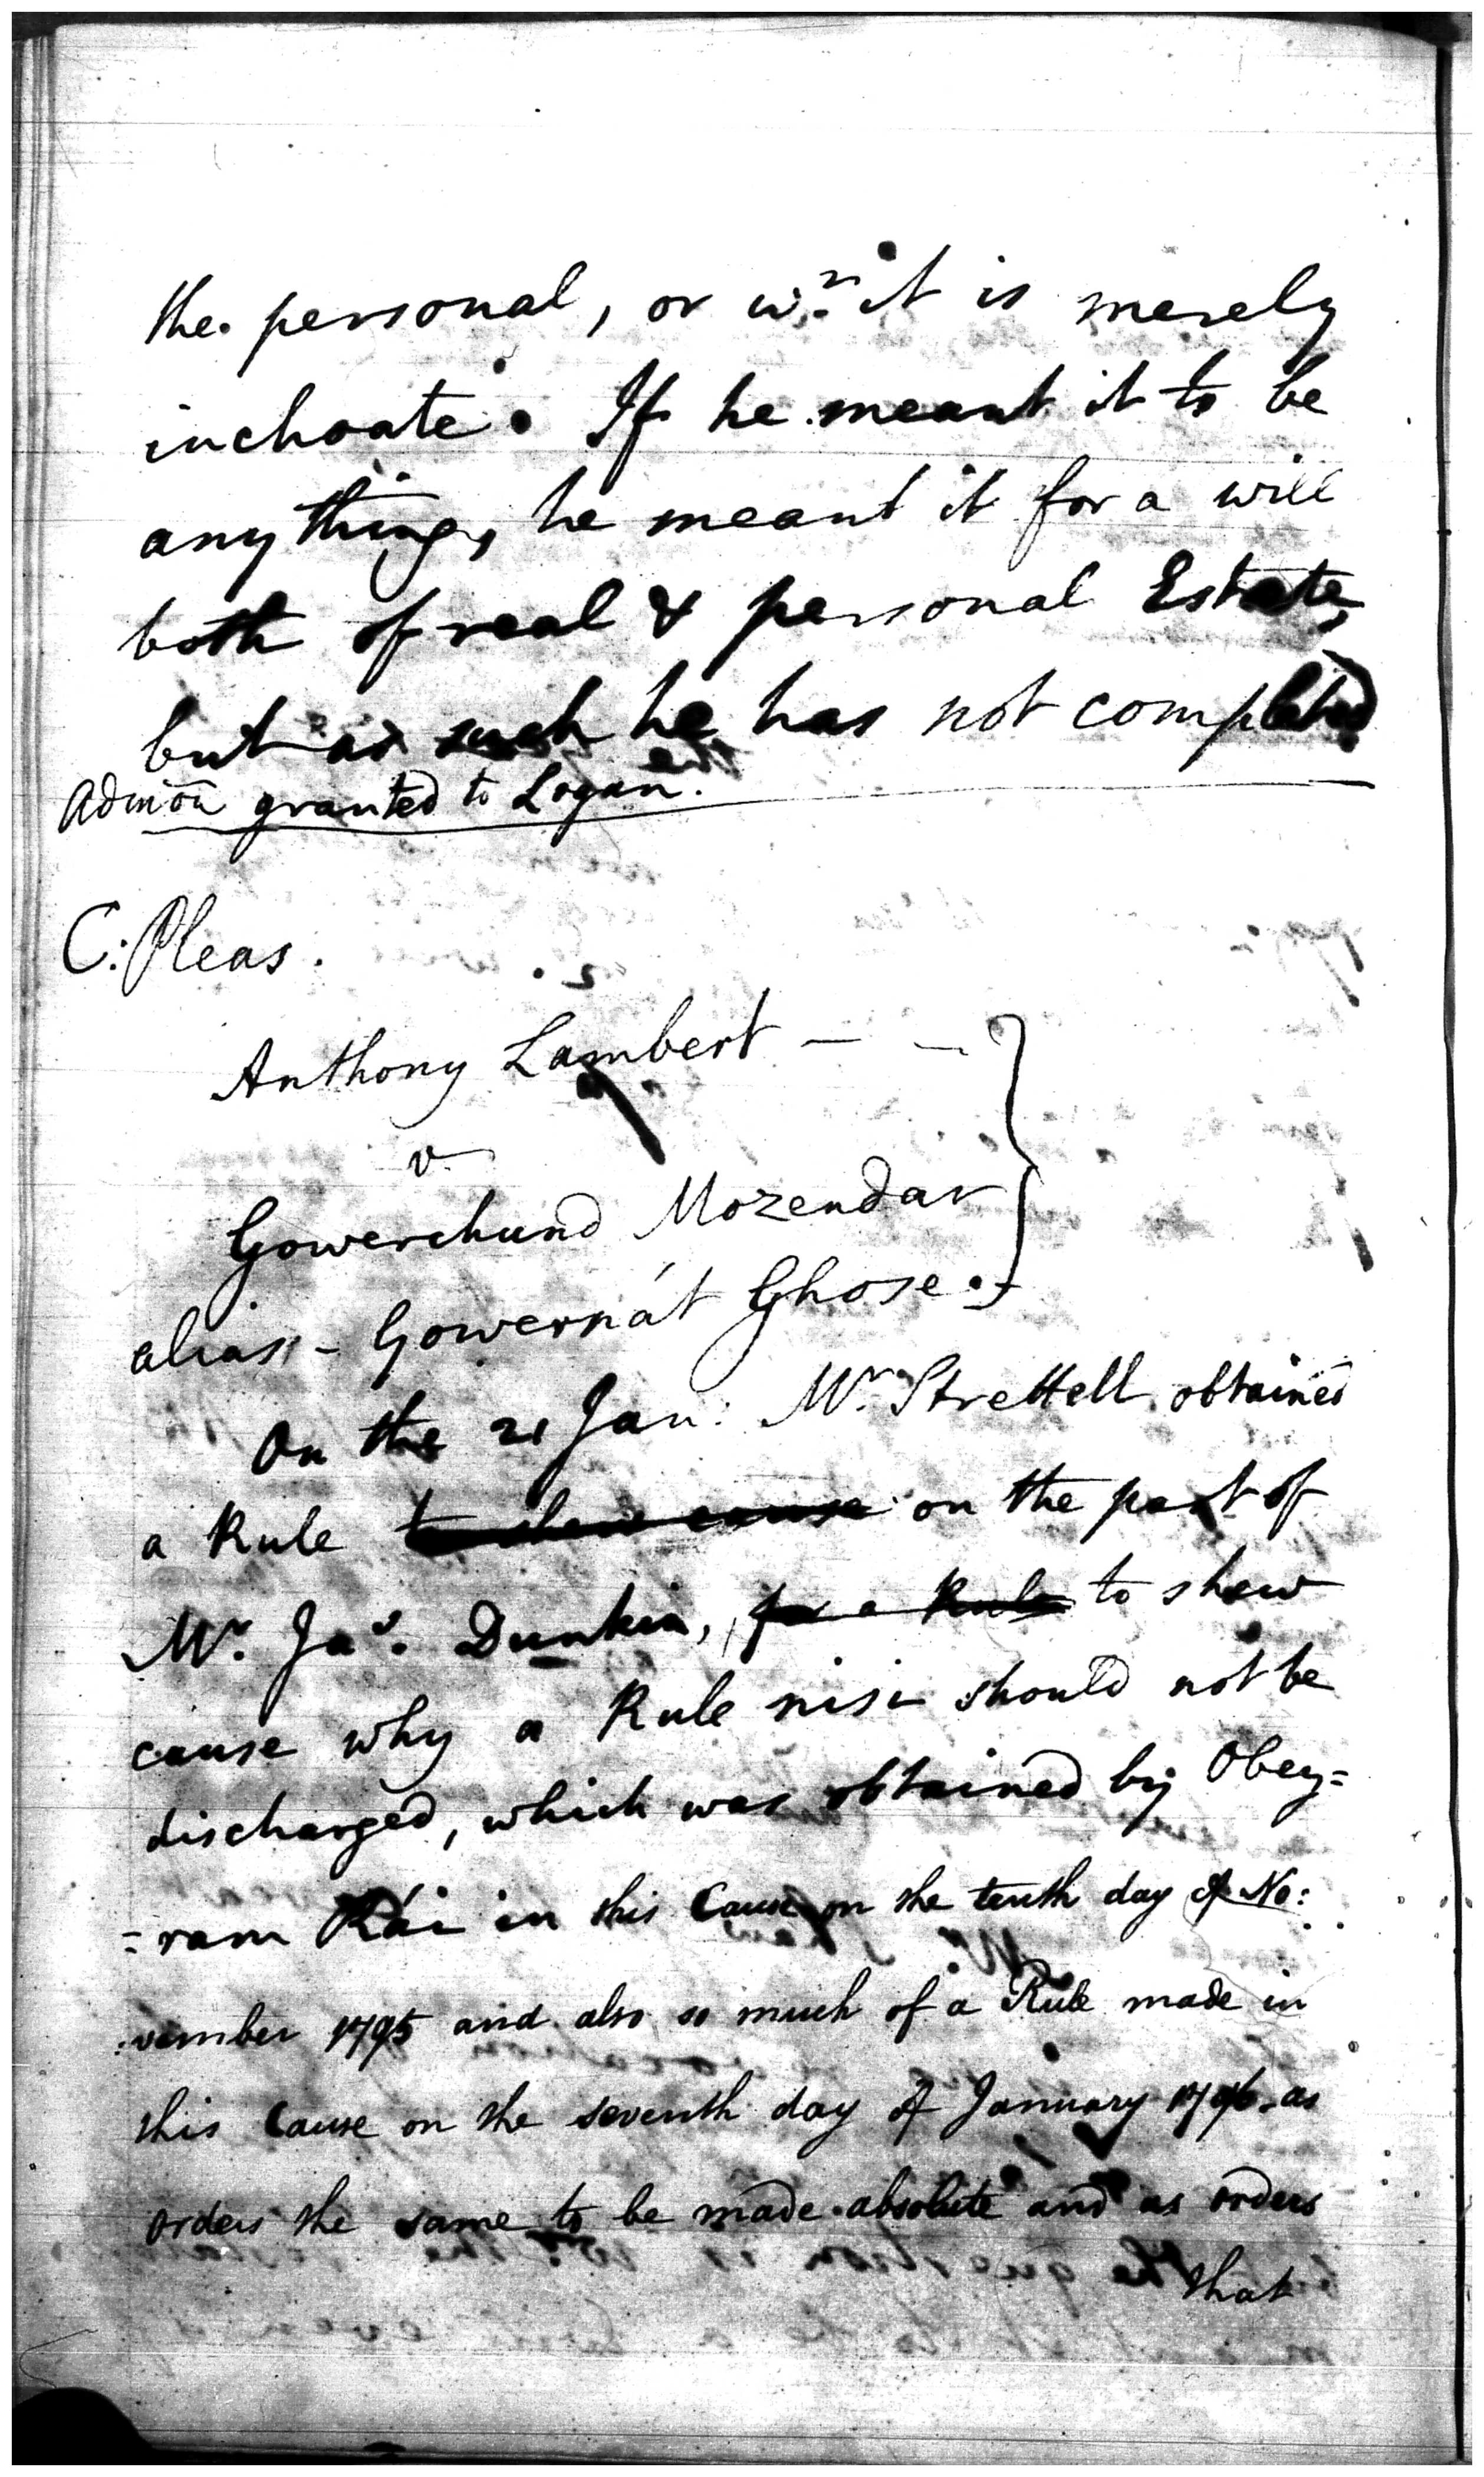 the personal, or wr. it is merely
inchoate. If he meant it to be
any thing, he meant it for a will
both of real & personal Estate,
but as such he has not completed
Admon granted to Logan.
C: Pleas.
Anthony Lambert — —
v.
Gowerchund Mozendar
alias - Gowernát Ghose.
On the 21 Jan: Mr. Strettell obtained
a Rule to shew cause on the part of
Mr. Jas. Dunkin, for a Rule to shew
cause why a Rule nisi should not be
discharged, which was obtained by Obey=
=ram Rái in this Cause on the tenth day of No:
:vember 1795 and also so much of a Rule made in
this Cause on the seventh day of January 1796. as
orders the same to be made absolute and as orders
that